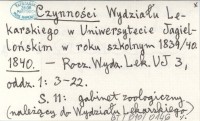 Czynności Wydziału Le-
karskiego w Uniwersytecie Jagiel-
lońskim w roku szkolnym 1839/40.
1840. – Rocz. Wydz. Lek. UJ 3,
oddz. 1: 3-22.
S. 11: gabinet zoologiczny
(należący do Wydziału Lekarskiego)